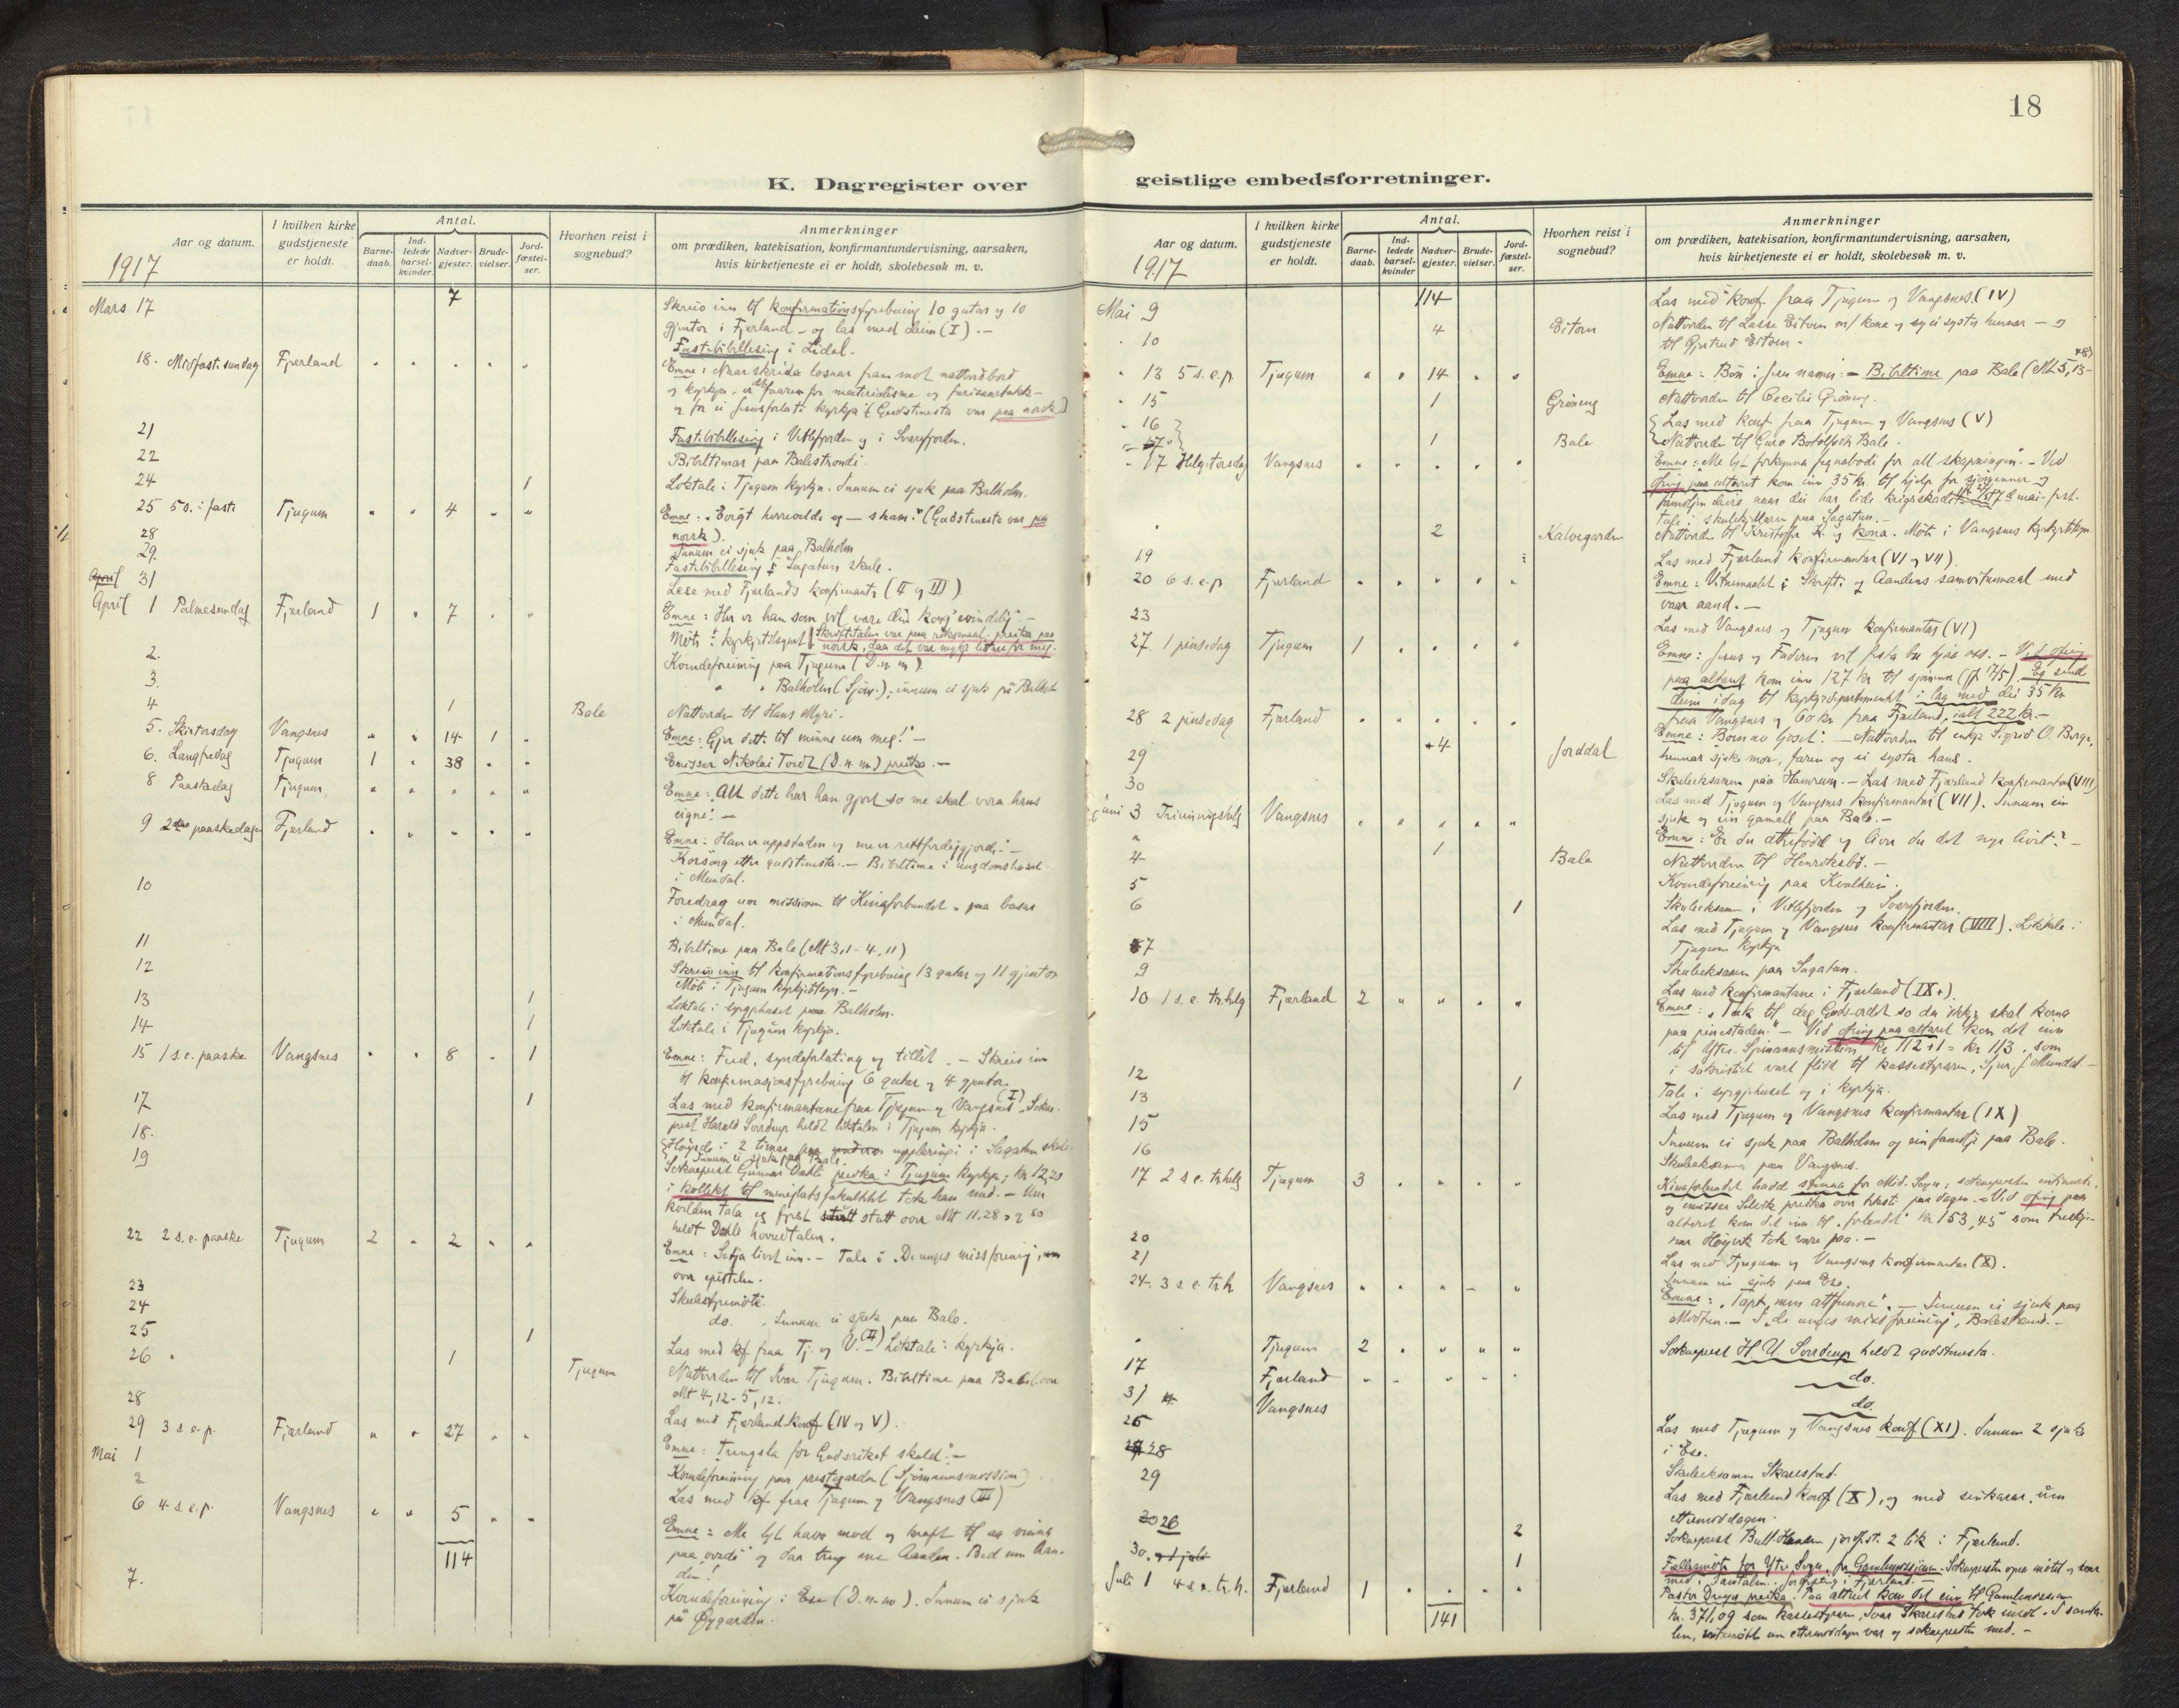 18
K. Dagregister over geistlige embedsforretninger.
Aar og datum.
I hvilken kirke gudstjeneste er holdt.
Antal.
Barne-daab.
Ind-ledede barsel-kvinder.
Nadver-gjester.
Brude-vielser.
Jord-fæstel-ser.
Hvorhen reist i sognebud?
Anmerkninger
om prædiken, katekisation, konfirmantundervisning, aarsaken,
hvis kirketjeneste ei er holdt, skolebesøk m. v.
1917
7
Mars 17 Skreiv inn til konfirmationsfyrebuing 10 gutar og 10
gjentor i Fjærland – og las med deim (I). –
Fastebibellesing i Lidal.
18. Midfast. sundag Fjærland " " " " "
Emne: Naar skrida losnar fram mot nattverdbord
og kyrkja (Gudstenesta var paa norsk)
21 Fastebibellesing i Vetlefjorden og i Sværefjorden.
22 Bibeltimar paa Balestrondi.
24 1 Liktale i Tjugum kyrkja. Innum ei sjuk paa Balholm.
25 5 s. i faste Tjugum " " 4 " "
Emne: (Gudstenesta var paa
norsk).
28 Innum ei sjuk paa Balholm
29. Fastebibellesing i Sagatun skule.
31 Lese med Fjærlands konfirmantar (II og III)
April 1 Palmesundag Fjærland 1 " 7 " "
Emne: Her er han som vil vare din kong
norsk, daa det var mykje lettare for meg.
2. Kvendeforeining paa Tjugum (D. n. m)
3. " " Balholm (Sjøm.); innum ei sjuk på Balholm
4 1 Bale Nattverden til Hans Myri.
5. Skirtorsdag Vangsnes " " 14 1 "
Emne: Gjer dette til minne um meg! –
6. Langfredag Tjugum 1 " 38 " "
Emissær Nikolai Tvedt (D. n. m) preika. –
8 Paaskedag Tjugum " " " " "
Emne: Alt dette har han gjort so me skal vera hans
eigne! –
9 2dre paaskedagen Fjærland " " " " "
Emne: Han er uppstaden og me er rettferdiggjorde! –
Korsong etter gudstenesta. – Bibeltime i ungdomshuset
i Mundal.
10 Foredrag um missionen til Kinaforbundet paa basar
i Mundal.
11 Bibeltime paa Bale (Mt 3,1 – 4,11)
12 Skreiv inn til konfirmationsfyrebuing 13 gutar og 11 gjentor
Møte i Tjugum kyrkjetilsyn. –
13 1 Liktale i syrgjehuset paa Balholm.
14 1 Liktale i Tjugum kyrkja.
15 1 s. e. paaske Vangsnes " " 8 " 1
Emne: Fred, syndeforlating og tillit. – Skreiv inn
til konfirmasjonsfyrebuing 6 gutar og 4 gjentor.
17 1 Las med konfirmantane fraa Tjugum og Vangsnes (I). Sokne-
prest Harald Sverdrup heldt liktalen i Tjugum kyrkja.
18. Høyrde i 2 timar upplæringi i Sagatun skule.
Innum ei sjuk paa Bale.
19 Sokneprest Gunnar Dehli preika i Tjugum kyrkja; kr 12,20
i kollekt til menighetsfakultetet tok han med. – Um
kvelden tala eg fyrst stutt over Mt 11.28 og so
heldt Dehli hovudtalen.
22 2 s. e. paaske Tjugum 2 " 2 " "
Emne: Setja livet inn. – Tale i "De unges missforening",
over epistelen.
23 Skulestyremøte.
24 do. – Innum ei sjuk paa Bale.
25 1 Las med kf fraa Tj. og V. (II) – Liktale i kyrkja.
26 " 1 Tjugum Nattverden til Ivar Tjugum. Bibeltime paa Bale
Mt 4,12 – 5,12.
28 Las med Fjærland konf (IV og V).
29 3 s e. p. Fjærland " " 27 " "
Emne: Trengsla for Gudsriket skuld! –
Mai 1 Kvendeforeining paa prestgarden (Sjømannsmission)
2 Las med kf fraa Tjugum og Vangsnes (III)
6 4 s. e. p. Vangsnes " " 5 " "
Emne: Me lyt hava mod og kraft til aa vinna
114
den!
7. Kvendeforeining i Ese (D. n. m). Innum ei sjuk
på Øygarden.
Aar og datum.
I hvilken kirke gudstjeneste er holdt.
Antal.
Barne-daab.
Ind-ledede barsel-kvinder
Nadver-gjester.
Brude-vielser.
Jord-fæstel-ser.
Hvorhen reist i sognebud?
Anmerkninger
om prædiken, katekisation, konfirmantundervisning, aarsaken,
hvis kirketjeneste ei er holdt, skolebesøk m. v.
1917
114
Mai 9 Las med konf fraa Tjugum og Vangsnes (IV)
" 10 4 Eitorn Nattverden til Lasse Eitorn m/ kona og ei syster hennar – og
til Gjertrud Eitorn.
" 13 5 s. e. p Tjugum " " 14 " "
Emne: Bøn i Jesu namn: – Bibeltime paa Bale (Mt 5,13-48)
" 15 1 Grøneng Nattverden til Cecilie Grøneng.
" 16 Las med konf fraa Tjugum og Vangsnes (V)
1 Bale Nattverden til Guro Botolfsdt Bale.
" 17 Helgetorsdag Vangsnes " " " " "
Emne: Me lyt forkynna fagnabodi for all skapningen. – Ved
ofring paa altaret kom inn 35 kr. til hjelp for sjømenner og
tale i skulekjellaren paa Sagatun. –
" 2 Kalvegarden Nattverden til Kristoffer K. og kona. Møte i Vangsnes kyrkjetilsyn.
19 Las med Fjærland konfirmantar (VI og VII).
20 6 s. e. p Fjærland " " " " "
Emne: Vitnemaalet i Skrifti og Aandens samvitnemaal med
vaar aand. –
23 Las med Vangsnes og Tjugum konfirmantar (VI)
27. 1 pinsedag Tjugum 1 " " " "
Emne: Jesus og Faderen vil festa bu hjaa oss. – Ved ofring
paa altaret kom inn 127 kr til sjømenn (jf 17/5). Eg sende
deim idag til kyrkjedepartementet i lag med dei 35 kr
fraa Vangsnes og 60 kr fraa Fjærland, ialt 222 kr. –
28 2 pinsedag Fjærland " " " " "
4 Jorddal Emne: Born av ljoset. – Nattverden til enkja Sigrid O. Berge,
hennar sjuke mor, faren og ei syster hans.
29 Skuleeksamen paa Hamrum. – Las med Fjærland konfirmantar (VIII)
30 Las med Tjugum og Vangsnes konfirmantar (VII). Innum ein
sjuk og ein gamall paa Bale. –
Juni 3 Trieiningshelg Vangsnes " " " " "
Emne: Er du attefødd og liver du det nye livet? –
" 1 Bale Nattverden til Henriksbø. –
4 Kvendeforeining paa Kvalheim.
5 Skuleeksamen i Vetlefjorden og Sværefjorden.
6 1 Las med Tjugum og Vangsnes konfirmantar (VIII). Liktale i
Tjugum kyrkja
7 Skuleeksamen paa Sagatun.
9 Las med konfirmantane i Fjærland (IX).
10 1 s. e. tr. helg Fjærland 2 " " " "
Emne: "Tak til deg Guds-ordet so du ikkje skal koma
paa pinestaden." – Ved ofring paa altaret kom det inn
til Ytre. Sjømannsmission kr 112 + 1 = kr 113, som
i sakristiet vart flidd til kassestyraren, Sjur J Mundal –
12 1 Tale i syrgjehuset og i kyrkja.
13 Las med Tjugum og Vangsnes konfirmantar (IX)
15 Innum ei sjuk paa Balholm og ein familje paa Bale.
16 Skuleeksamen paa Vangsnes.
17 2 s e. tr. helg Tjugum 3 " " " "
Kinaforbundet hadde stemna for Mid-Sogn;
altaret kom det inn til forbundet kr 153,45 som
tok vare paa. –
20 Las med Tjugum og Vangsnes konfirmantar (X).
21 Innum ein sjuk paa Ese.
24. 3 s e. tr. h Vangsnes " " " " "
Emne: "Tapt, men attfunne". – Innum ei sjuk paa
– I "de unges missforeining", Balestrand. –
" Tjugum 2 " " " "
Sokneprest H. U. Sverdrup heldt gudstenesta.
17 Fjærland " " " " "
do.
31 Vangsnes
do.
26 Las med Tjugum og Vangsnes konf (XI). Innum 2 sjuke
i Ese.
28 Skuleeksamen Skarestad.
29 Las med Fjærland konf (X), og med um
ettermiddagen.
26 2 Sokneprest Bull-Hansen jordfest. 2 lik i Fjærland.
30. 1 Fællesmøte for Ytre Sogn
Juli 1 4 s. e. tr. h. Fjærland 1 " " " "
preika. Paa altaret kom det inn til
kr. 371,09 som kassestyraren, Ivar Skarestad tok imot.
141
um ettermiddagen var og soknepresten med. –